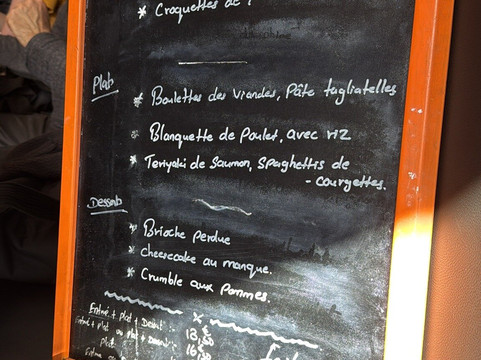 * Croquettes de
Plats
* Boulettes des viandes, Pâte tagliatelles
* Blanquette de Poulet, avec riz
* Teriyaki de Saumon, Spaghettis de
- courgettes.
Desserts
* Brioche perdue
* Cheesecake au mangue.
* Crumble aux Pommes.
Entrée + plat + Dessert :
Entrée + plat ou plat + Dessert :
plat